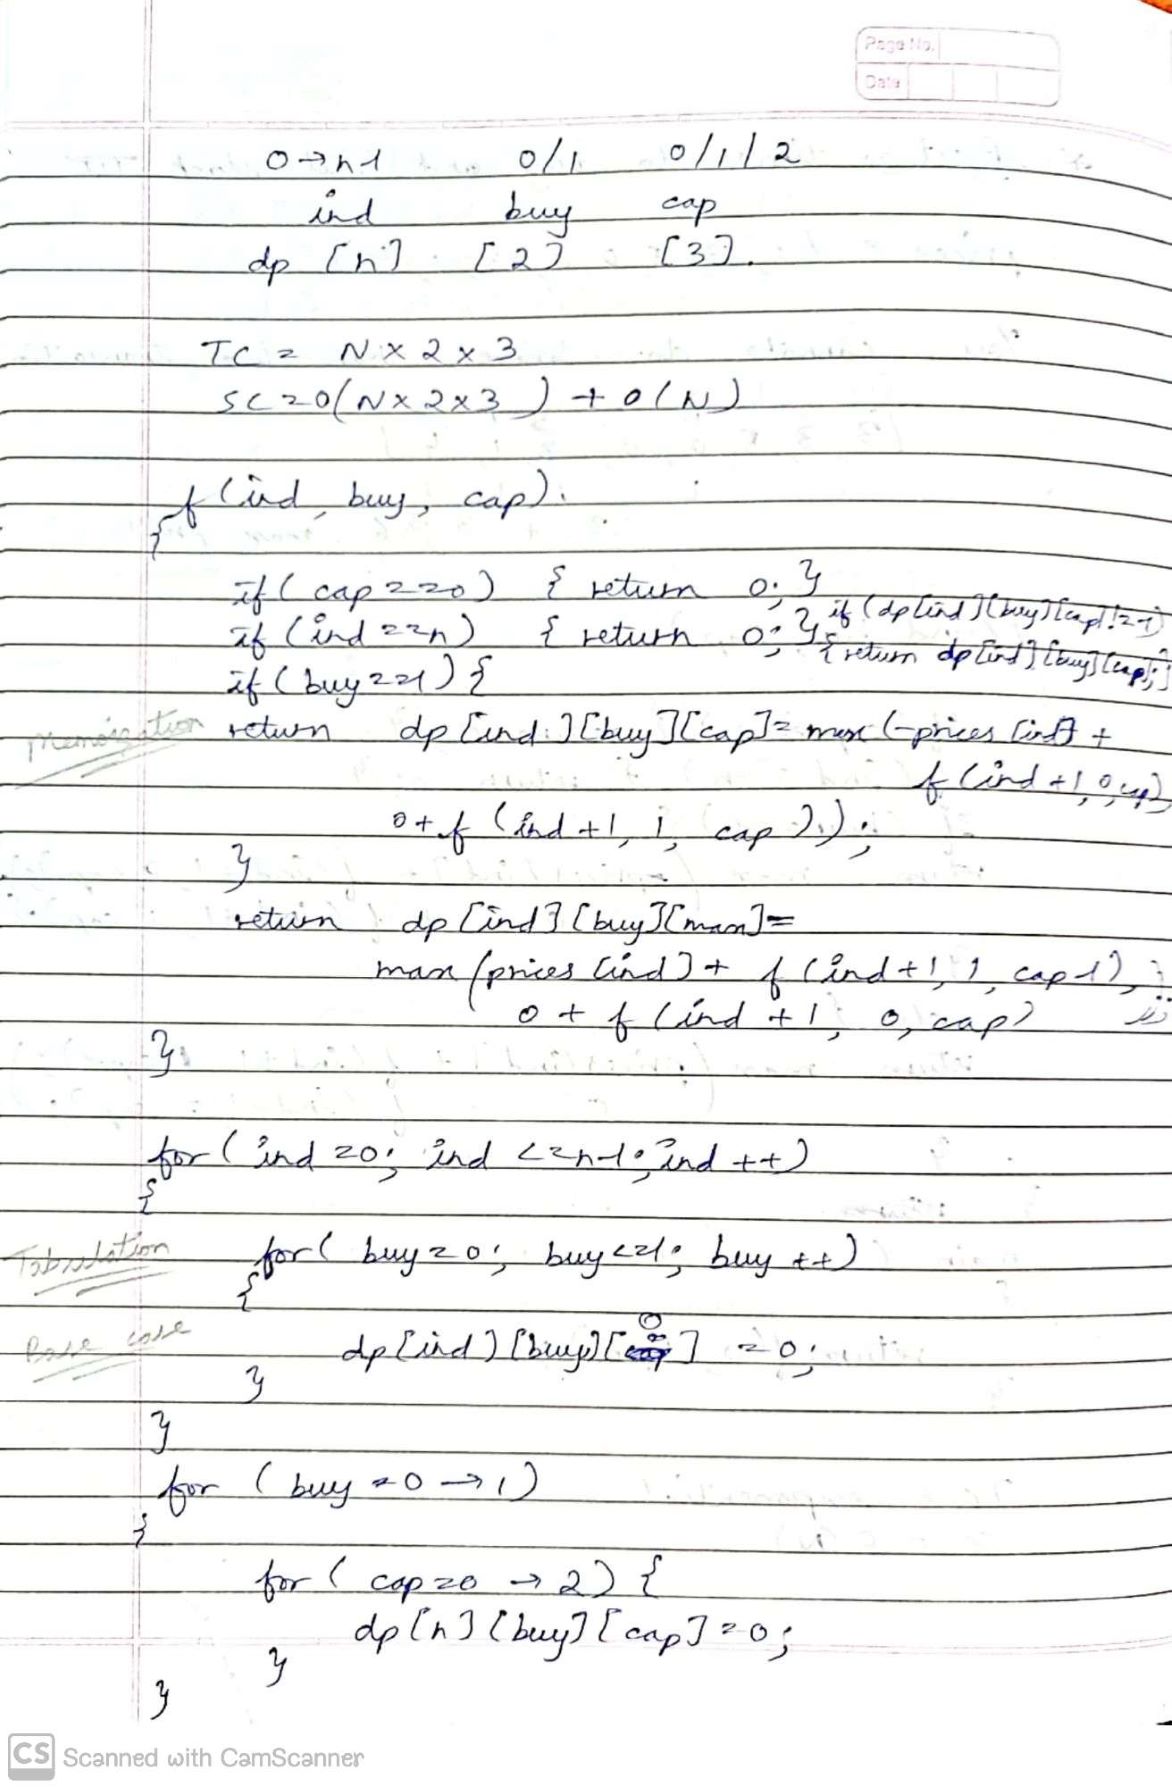 Page No.
Date
0→n-1 0/1 0/1/2
ind buy cap
dp [n] [2] [3].
TC = N x 2 x 3
SC = O(N x 2 x 3) + O(N)
f (ind, buy, cap).
{
if ( cap == 0) { return 0; }
if (ind == n) { return 0; } if (dp[ind][buy][cap]!=-1)
{ return dp[ind][buy][cap];}
if (buy == 1) {
Memoization return dp [ind] [buy][cap]= max (-prices [ind] +
f (ind +1, 0, cap),
0 + f (ind +1, 1, cap ));
}
return dp [ind] [buy][max]=
max (prices [ind] + f (ind +1, 1, cap-1),
0 + f (ind +1, 0, cap)
}
for ( ind =0; ind <=n-1; ind ++)
{
Tabulation for( buy = 0; buy <=1; buy ++)
{
0
Base case dp [ind] [buy] [cap] = 0;
}
}
for ( buy = 0 → 1)
{
for ( cap =0 → 2) {
dp [n] [buy] [cap] = 0;
}
}
CS Scanned with CamScanner